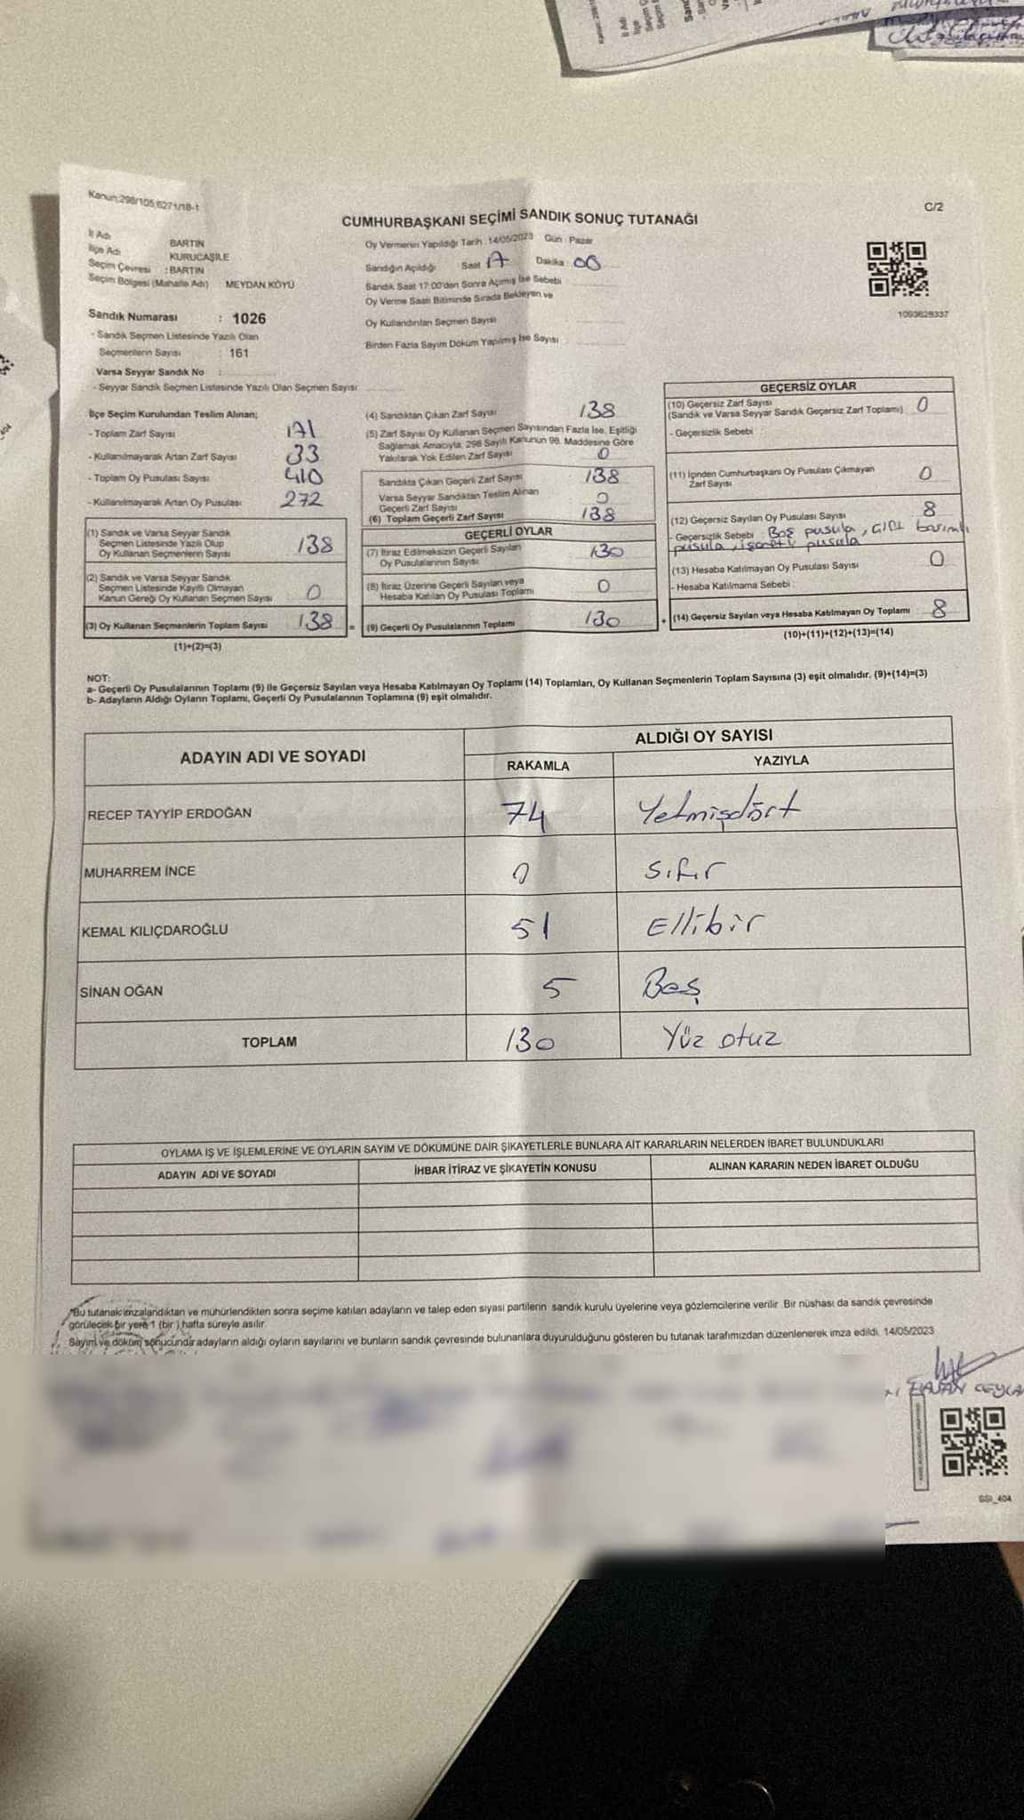 Kanun:298/105,6271/18-1
CUMHURBAŞKANI SEÇİMİ SANDIK SONUÇ TUTANAĞI
C/2
İl Adı BARTIN
İlçe Adı KURUCAŞİLE
Seçim Çevresi : BARTIN
Seçim Bölgesi (Mahalle Adı) MEYDAN KÖYÜ
Sandık Numarası : 1026
- Sandık Seçmen Listesinde Yazılı Olan
Seçmenlerin Sayısı : 161
Varsa Seyyar Sandık No :
- Seyyar Sandık Seçmen Listesinde Yazılı Olan Seçmen Sayısı
Oy Vermenin Yapıldığı Tarih : 14/05/2023 Gün : Pazar
Sandığın Açıldığı Saat 17 Dakika 00
Sandık Saat 17:00'den Sonra Açılmış İse Sebebi
Oy Verme Saati Bitiminde Sırada Bekleyen ve
Oy Kullandırılan Seçmen Sayısı
Birden Fazla Sayım Döküm Yapılmış İse Sayısı
1093629337
İlçe Seçim Kurulundan Teslim Alınan;
- Toplam Zarf Sayısı 171
- Kullanılmayarak Artan Zarf Sayısı 33
- Toplam Oy Pusulası Sayısı 410
- Kullanılmayarak Artan Oy Pusulası 272
(1) Sandık ve Varsa Seyyar Sandık
Seçmen Listesinde Yazılı Olup
Oy Kullanan Seçmenlerin Sayısı 138
(2) Sandık ve Varsa Seyyar Sandık
Seçmen Listesinde Kayıtlı Olmayan
Kanun Gereği Oy Kullanan Seçmen Sayısı 0
(3) Oy Kullanan Seçmenlerin Toplam Sayısı 138 =
(1)+(2)=(3)
(4) Sandıktan Çıkan Zarf Sayısı 138
(5) Zarf Sayısı Oy Kullanan Seçmen Sayısından Fazla İse, Eşitliği
Sağlamak Amacıyla, 298 Sayılı Kanunun 98. Maddesine Göre
Yakılarak Yok Edilen Zarf Sayısı 0
Sandıkta Çıkan Geçerli Zarf Sayısı 138
Varsa Seyyar Sandıktan Teslim Alınan
Geçerli Zarf Sayısı 0
(6) Toplam Geçerli Zarf Sayısı 138
GEÇERLİ OYLAR
(7) İtiraz Edilmeksizin Geçerli Sayılan
Oy Pusulasının Sayısı 130
(8) İtiraz Üzerine Geçerli Sayılan veya
Hesaba Katılan Oy Pusulası Toplamı 0
(9) Geçerli Oy Pusulalarının Toplamı 130 +
GEÇERSİZ OYLAR
(10) Geçersiz Zarf Sayısı
(Sandık ve Varsa Seyyar Sandık Geçersiz Zarf Toplamı) 0
- Geçersizlik Sebebi :
(11) İçinden Cumhurbaşkanı Oy Pusulası Çıkmayan
Zarf Sayısı 0
(12) Geçersiz Sayılan Oy Pusulası Sayısı 8
- Geçersizlik Sebebi Boş pusula, çift basımlı
pusula, işaretli pusula
(13) Hesaba Katılmayan Oy Pusulası Sayısı 0
- Hesaba Katılmama Sebebi :
(14) Geçersiz Sayılan veya Hesaba Katılmayan Oy Toplamı 8
(10)+(11)+(12)+(13)=(14)
NOT:
a- Geçerli Oy Pusulalarının Toplamı (9) ile Geçersiz Sayılan veya Hesaba Katılmayan Oy Toplamı (14) Toplamları, Oy Kullanan Seçmenlerin Toplam Sayısına (3) eşit olmalıdır. (9)+(14)=(3)
b- Adayların Aldığı Oyların Toplamı, Geçerli Oy Pusulalarının Toplamına (9) eşit olmalıdır.
ADAYIN ADI VE SOYADI ALDIĞI OY SAYISI
RAKAMLA YAZIYLA
RECEP TAYYİP ERDOĞAN 74 Yetmişdört
MUHARREM İNCE 0 Sıfır
KEMAL KILIÇDAROĞLU 51 Ellibir
SİNAN OĞAN 5 Beş
TOPLAM 130 Yüz otuz
OYLAMA İŞ VE İŞLEMLERİNE VE OYLARIN SAYIM VE DÖKÜMÜNE DAİR ŞİKAYETLERLE BUNLARA AİT KARARLARIN NELERDEN İBARET BULUNDUKLARI
ADAYIN ADI VE SOYADI İHBAR İTİRAZ VE ŞİKAYETİN KONUSU ALINAN KARARIN NEDEN İBARET OLDUĞU
*Bu tutanak imzalandıktan ve mühürlendikten sonra seçime katılan adayların ve talep eden siyasi partilerin sandık kurulu üyelerine veya gözlemcilerine verilir. Bir nüshası da sandık çevresinde
görülecek bir yere 1 (bir) hafta süreyle asılır.
Sayım ve döküm sonucundır adayların aldığı oyların sayılarını ve bunların sandık çevresinde bulunanlara duyurulduğunu gösteren bu tutanak tarafımızdan düzenlenerek imza edildi. 14/05/2023
SSI_404